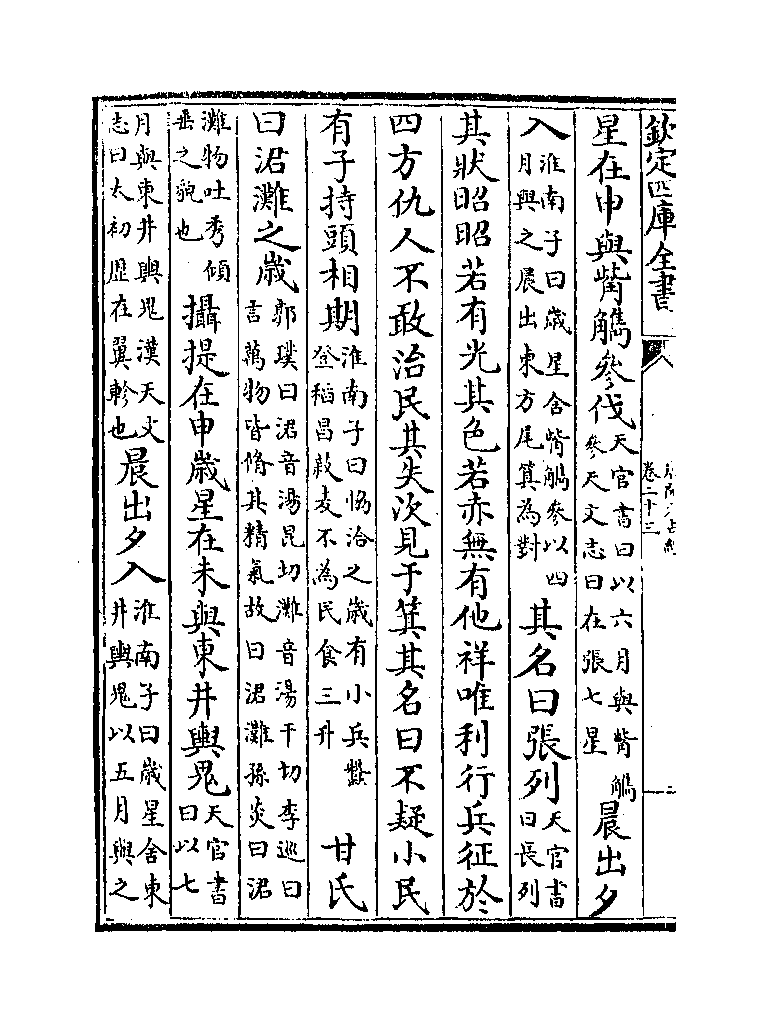 欽定四庫全書
卷二十三
星在申與觜觿參伐天官書曰以六月與觜觿參天文志曰在張七星晨出夕
入淮南子曰歲星舍觜觿參以四月與之晨出東方尾箕為對其名曰張列天官書曰長列
其狀昭昭若有光其色若亦無有他祥唯利行兵征於
四方仇人不敢治民其失次見于箕其名曰不疑小民
有子持頭相期淮南子曰協洽之歲有小兵蠶登稻昌菽麥不為民食三升甘氏
曰涒灘之歲郭璞曰涒音湯昆切灘音湯干切李巡曰言萬物皆脩其精氣故曰涒灘孫炎曰涒
灘物吐秀傾垂之貌也攝提在申歲星在未與東井輿鬼天官書曰以七
月與東井輿鬼漢天文志曰太初歷在翼軫也晨出夕入淮南子曰歲星舍東井輿鬼以五月與之